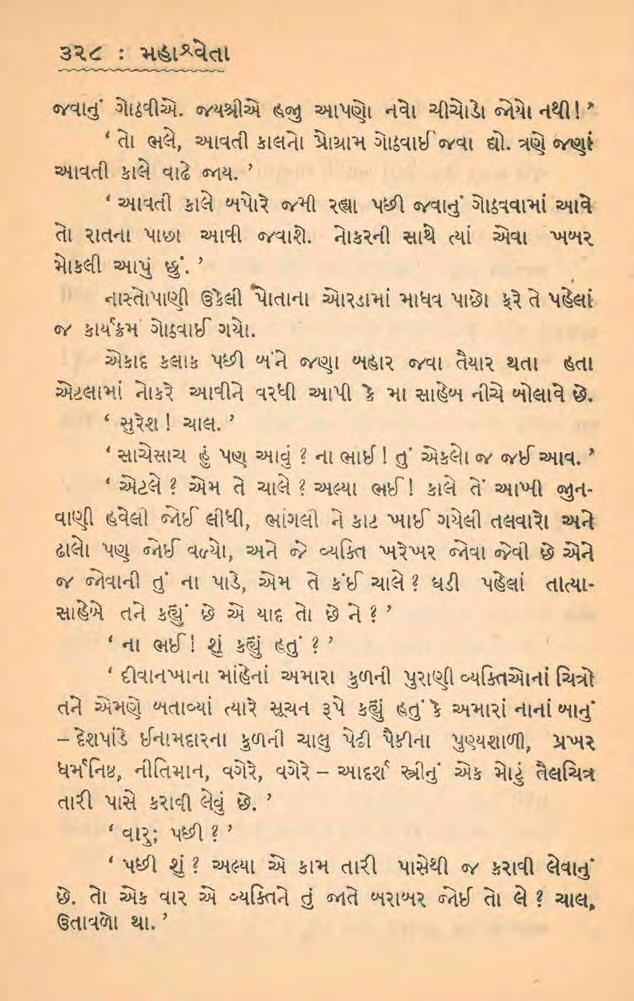 ૩૨૮ : મહાશ્વેતા
જવાનું ગોઠવીએ. જયશ્રીએ હજી આપણો નવો ચીચોડો જોયો નથી! ’
‘ તો ભલે, આવતી કાલનો પ્રોગ્રામ ગોઠવાઈ જવા દ્યો. ત્રણે જણાં
આવતી કાલે વાઢે જાય. ’
‘ આવતી કાલે બપોરે જમી રહ્યા પછી જવાનું ગોઠવવામાં આવે
તો રાતના પાછા આવી જવાશે. નોકરની સાથે ત્યાં એવા ખબર
મોકલી આપું છું. ’
નાસ્તોપાણી ઉકેલી પોતાના ઓરડામાં માધવ પાછો ફરે તે પહેલાં
જ કાર્યક્રમ ગોઠવાઈ ગયો.
એકાદ કલાક પછી બંને જણા બહાર જવા તૈયાર થતા હતા
એટલામાં નોકરે આવીને વરધી આપી કે મા સાહેબ નીચે બોલાવે છે.
‘ સુરેશ ! ચાલ. ’
‘ સાચેસાચ હું પણ આવું ? ના ભાઈ ! તું એકલો જ જઈ આવ. ’
‘ એટલે ? એમ તે ચાલે ? અલ્યા ભઈ! કાલે તેં આખી જુન-
વાણી હવેલી જોઈ લીધી, ભાંગલી ને કાટ ખાઈ ગયેલી તલવારો અને
ઢાલો પણ જોઈ વળ્યો, અને જે વ્યક્તિ ખરેખર જોવા જેવી છે એને
જ જોવાની તું ના પાડે, એમ તે કંઈ ચાલે ? ઘડી પહેલાં તાત્યા-
સાહેબે તને કહ્યું છે એ યાદ તો છે ને ? ’
‘ ના ભઈ! શું કહ્યું હતું ? ’
‘ દીવાનખાના માંહેનાં અમારા કુળની પુરાણી વ્યક્તિઓનાં ચિત્રો
તને એમણે બતાવ્યાં ત્યારે સૂચન રૂપે કહ્યું હતું કે અમારાં નાનાં બાનું
– દેશપાંડે ઈનામદારના કુળની ચાલુ પેઢી પૈકીના પુણ્યશાળી, પ્રખર
ધર્મનિષ્ઠ, નીતિમાન, વગેરે, વગેરે – આદર્શ સ્ત્રીનું એક મોટું તૈલચિત્ર
તારી પાસે કરાવી લેવું છે. ’
‘ વારુ; પછી ? ’
‘ પછી શું ? અલ્યા એ કામ તારી પાસેથી જ કરાવી લેવાનું
છે. તો એક વાર એ વ્યક્તિને તું જાતે બરાબર જોઈ તો લે ? ચાલ,
ઉતાવળો થા. ’